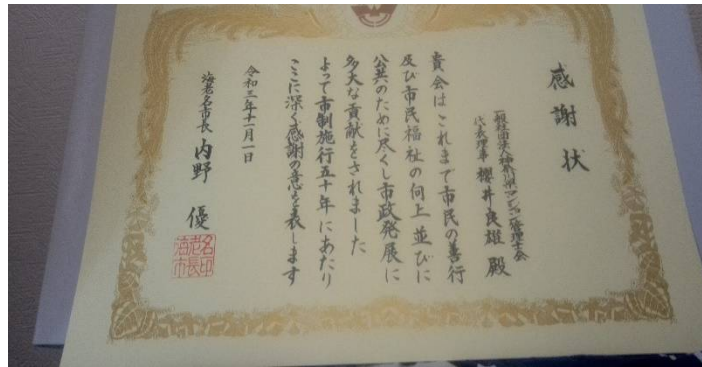 感謝状
一般社団法人神奈川県マンション管理士会
代表理事 櫻井良雄 殿
貴会はこれまで市民の善行
及び市民福祉の向上並びに
公共のために尽くし市政発展に
多大な貢献をされました
よって市制施行五十年にあたり
ここに深く感謝の意を表します
令和三年十一月一日
海老名市長 内野 優
海老名市長印